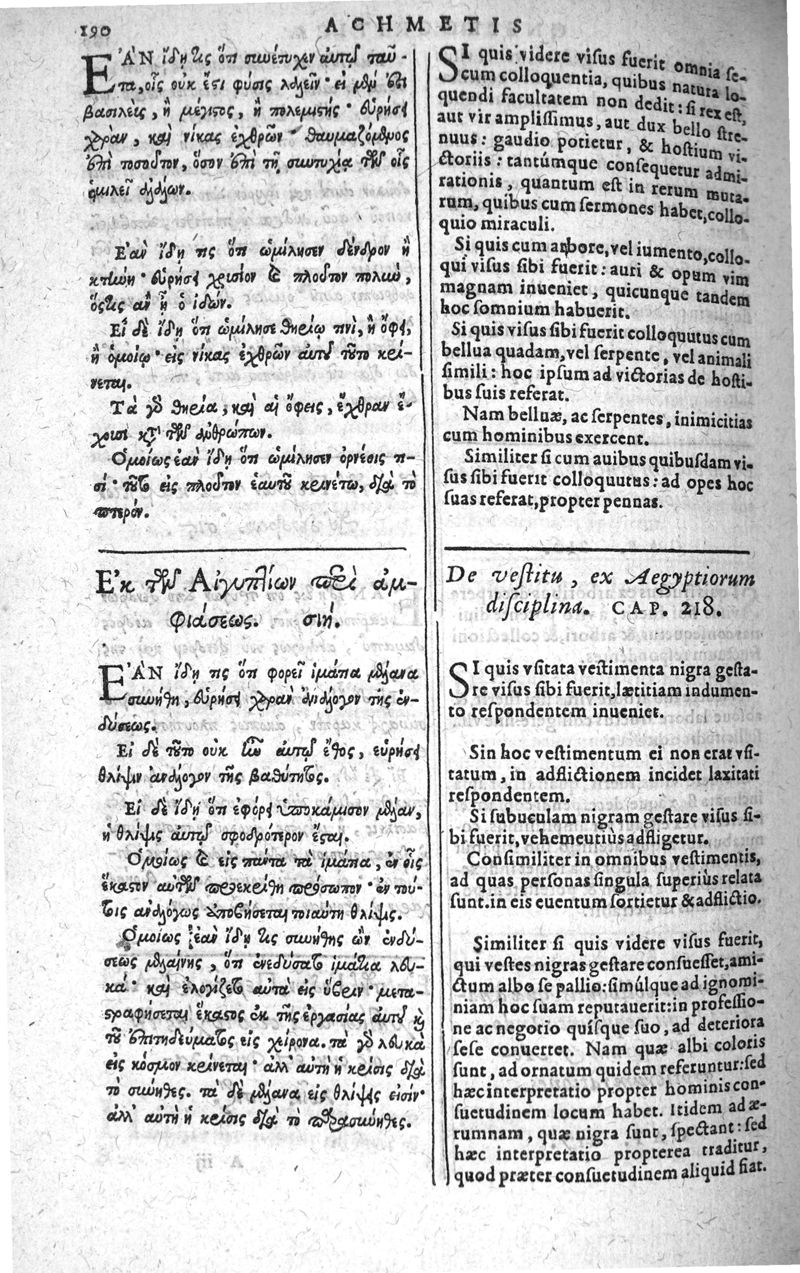 190
ACHMETIS
ἘΑΝ ἴδῃ τις ὅτι συνέτυχεν αὐτῷ ταῦ-
τα, οἷς οὐκ ἔστι φύσις λαλεῖν· εἰ μέν ἐστι
βασιλεὺς, ἢ μέγιστος, ἢ πολεμιστής· εὑρήσει
χαρὰν, καὶ νίκας ἐχθρῶν· θαυμαζόμενος
ἐπὶ τοσοῦτον, ὅσον ἐπὶ τῇ συντυχίᾳ τῶν οἷς
ὡμίλει ἀλάλων.
Ἐὰν ἴδῃ τις ὅτι ὡμίλησεν δένδρον ἢ
κτήνη· εὑρήσει χρυσίον καὶ πλοῦτον πολὺν,
ὅστις ἂν ᾖ ὁ ἰδών.
Εἰ δὲ ἴδῃ ὅτι ὡμίλησε θηρίῳ τινὶ, ἢ ὄφει,
ἢ ὁμοίῳ· εἰς νίκας ἐχθρῶν αὐτοῦ τοῦτο κρί-
νεται.
Τὰ γὰρ θηρία, καὶ αἱ ὄφεις, ἔχθραν ἔ-
χουσι κατὰ τῶν ἀνθρώπων.
Ὁμοίως ἐὰν ἴδῃ ὅτι ὡμίλησεν ὀρνέοις τι-
σί· τοῦτο εἰς πλοῦτον ἑαυτοῦ κρινέτω, διὰ τὸ
πτερόν.
Ἐκ τῶν Αἰγυπτίων περὶ ἀμ-
φιάσεως. σιή.
ἘΑΝ ἴδῃ τις ὅτι φορεῖ ἱμάτια μέλανα
συνήθη, εὑρήσει χαρὰν ἀνάλογον τῆς ἐν-
δύσεως.
Εἰ δὲ τοῦτο οὐκ ἦν αὐτῷ ἔθος, εὑρήσει
θλίψιν ἀνάλογον τῆς βαθύτητος.
Εἰ δὲ ἴδῃ ὅτι ἐφόρει ὑποκάμισον μέλαν,
ἡ θλίψις αὐτῷ σφοδρότερον ἔσται.
Ὁμοίως καὶ εἰς πάντα τὰ ἱμάτια, ἐν οἷς
ἕκαστον αὐτῶν προεκρίθη πρόσωπον· ἐν τού-
τοις ἀναλόγως ἀποβήσεται τοιαύτη θλίψις.
Ὁμοίως ἐὰν ἴδῃ τις συνήθης ὢν ἐνδύ-
σεως μελαίνης, ὅτι ἐνεδύσατο ἱμάτια λευ-
κά· καὶ ἐλογίζετο αὐτὰ εἰς ὕβριν· μετα-
στραφήσεται ἕκαστος ἐκ τῆς ἐργασίας αὐτοῦ καὶ
τοῦ ἐπιτηδεύματος εἰς χείρονα. τὰ γὰρ λευκὰ
εἰς κόσμον κρίνεται· ἀλλ' αὕτη ἡ κρίσις διὰ
τὸ σύνηθες. τὰ δὲ μέλανα εἰς θλίψης εἰσίν·
ἀλλ' αὕτη ἡ κρίσις διὰ τὸ παρασύνηθες.
SI quis videre visus fuerit omnia se-
cum colloquentia, quibus natura lo-
quendi facultatem non dedit: si rex est,
aut vir amplissimus, aut dux bello stre-
nuus: gaudio potietur, & hostium vi-
ctoriis: tantúmque consequetur admi-
rationis, quantum est in rerum muta-
rum, quibus cum sermones habet, collo-
quio miraculi.
Si quis cum arbore, vel iumento, collo-
qui visus sibi fuerit: auri & opum vim
magnam inueniet, quicunque tandem
hoc somnium habuerit.
Si quis visus sibi fuerit colloquutus cum
bellua quadam, vel serpente, vel animali
simili: hoc ipsum ad victorias de hosti-
bus suis referat.
Nam belluæ, ac serpentes, inimicitias
cum hominibus exercent.
Similiter si cum auibus quibusdam vi-
sus sibi fuerit colloquutus: ad opes hoc
suas referat, propter pennas.
De vestitu, ex Aegyptiorum
disciplina. CAP. 218.
SI quis vsitata vestimenta nigra gesta-
re visus sibi fuerit, lætitiam indumen-
to respondentem inueniet.
Sin hoc vestimentum ei non erat vsi-
tatum, in adflictionem incidet laxitati
respondentem.
Si subuculam nigram gestare visus si-
bi fuerit, vehementiùs adfligetur.
Consimiliter in omnibus vestimentis,
ad quas personas singula superiùs relata
sunt. in eis euentum sortietur & adflictio.
Similiter si quis videre visus fuerit,
qui vestes nigras gestare consuesset, ami-
ctum albo se pallio: simúlque ad ignomi-
niam hoc suam reputauerit: in professio-
ne ac negotio quisque suo, ad deteriora
sese conuertet. Nam quæ albi coloris
sunt, ad ornatum quidem referuntur: sed
hæc interpretatio propter hominis con-
suetudinem locum habet. Itidem ad æ-
rumnam, quæ nigra sunt, spectant: sed
hæc interpretatio propterea traditur,
quod præter consuetudinem aliquid fiat.